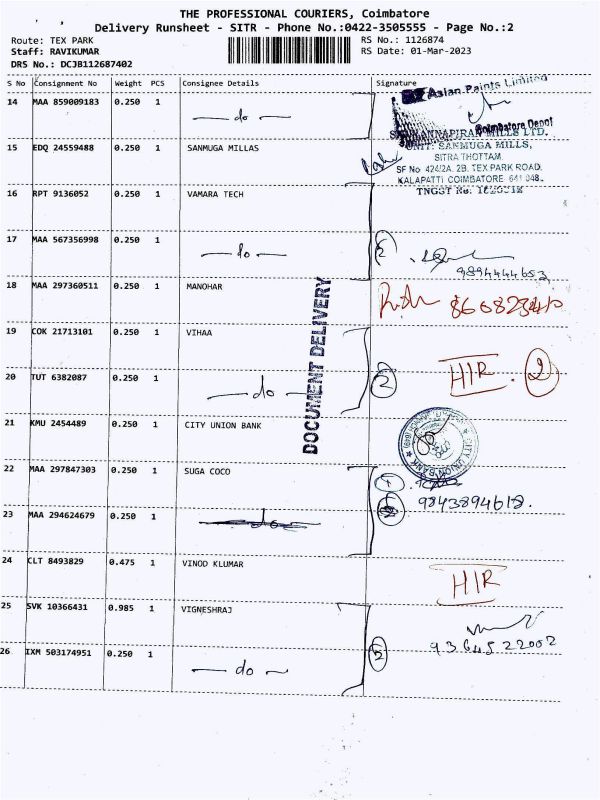 THE PROFESSIONAL COURIERS, Coimbatore
Delivery Runsheet - SITR - Phone No.:0422-3505555 - Page No.:2
Route: TEX PARK RS No.: 1126874
Staff: RAVIKUMAR RS Date: 01-Mar-2023
DRS No.: DCJB112687402
S No Consignment No Weight PCS Consignee Details Signature
14 MAA 859009183 0.250 1 — do —
Asian Paints Limited
Coimbatore Depot
MILLS LTD.
15 EDQ 24559488 0.250 1 SANMUGA MILLAS
UNIT: SANMUGA MILLS,
SITRA THOTTAM
SF No 424/2A, 2B, TEX PARK ROAD,
KALAPATTI COIMBATORE 641 048.
TNGST No:
16 RPT 9136052 0.250 1 VAMARA TECH
17 MAA 567356998 0.250 1 — do —
2
9894444653
18 MAA 297360511 0.250 1 MANOHAR
19 COK 21713101 0.250 1 VIHAA
HIR . 2
20 TUT 6382087 0.250 1 — do — 2
DOCUMENT DELIVERY
21 KMU 2454489 0.250 1 CITY UNION BANK
CITY UNION BANK
22 MAA 297847303 0.250 1 SUGA COCO
9843894618.
23 MAA 294624679 0.250 1 — do —
24 CLT 8493829 0.475 1 VINOD KLUMAR
HIR
25 SVK 10366431 0.985 1 VIGNESHRAJ
9364522002
26 IXM 503174951 0.250 1 — do — 2